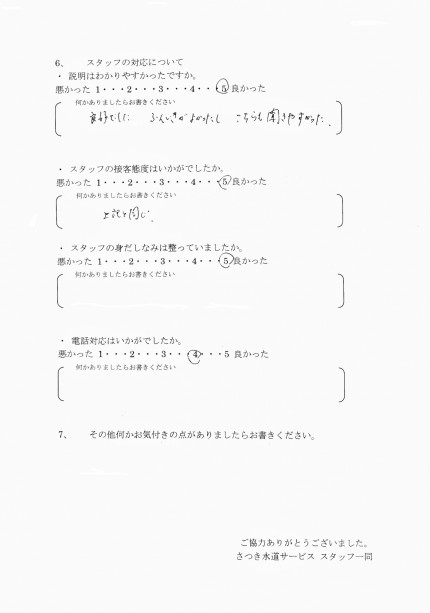 6、 スタッフの対応について
・ 説明はわかりやすかったですか。
悪かった 1・・・2・・・3・・・4・・・5 良かった
何かありましたらお書きください
良好でした ふんいきがよかったし こちらも聞きやすかった。
・ スタッフの接客態度はいかがでしたか。
悪かった 1・・・2・・・3・・・4・・・5 良かった
何かありましたらお書きください
上記と同じ。
・ スタッフの身だしなみは整っていましたか。
悪かった 1・・・2・・・3・・・4・・・5 良かった
何かありましたらお書きください
・ 電話対応はいかがでしたか。
悪かった 1・・・2・・・3・・・4・・・5 良かった
何かありましたらお書きください
7、 その他何かお気付きの点がありましたらお書きください。
ご協力ありがとうございました。
さつき水道サービス スタッフ一同